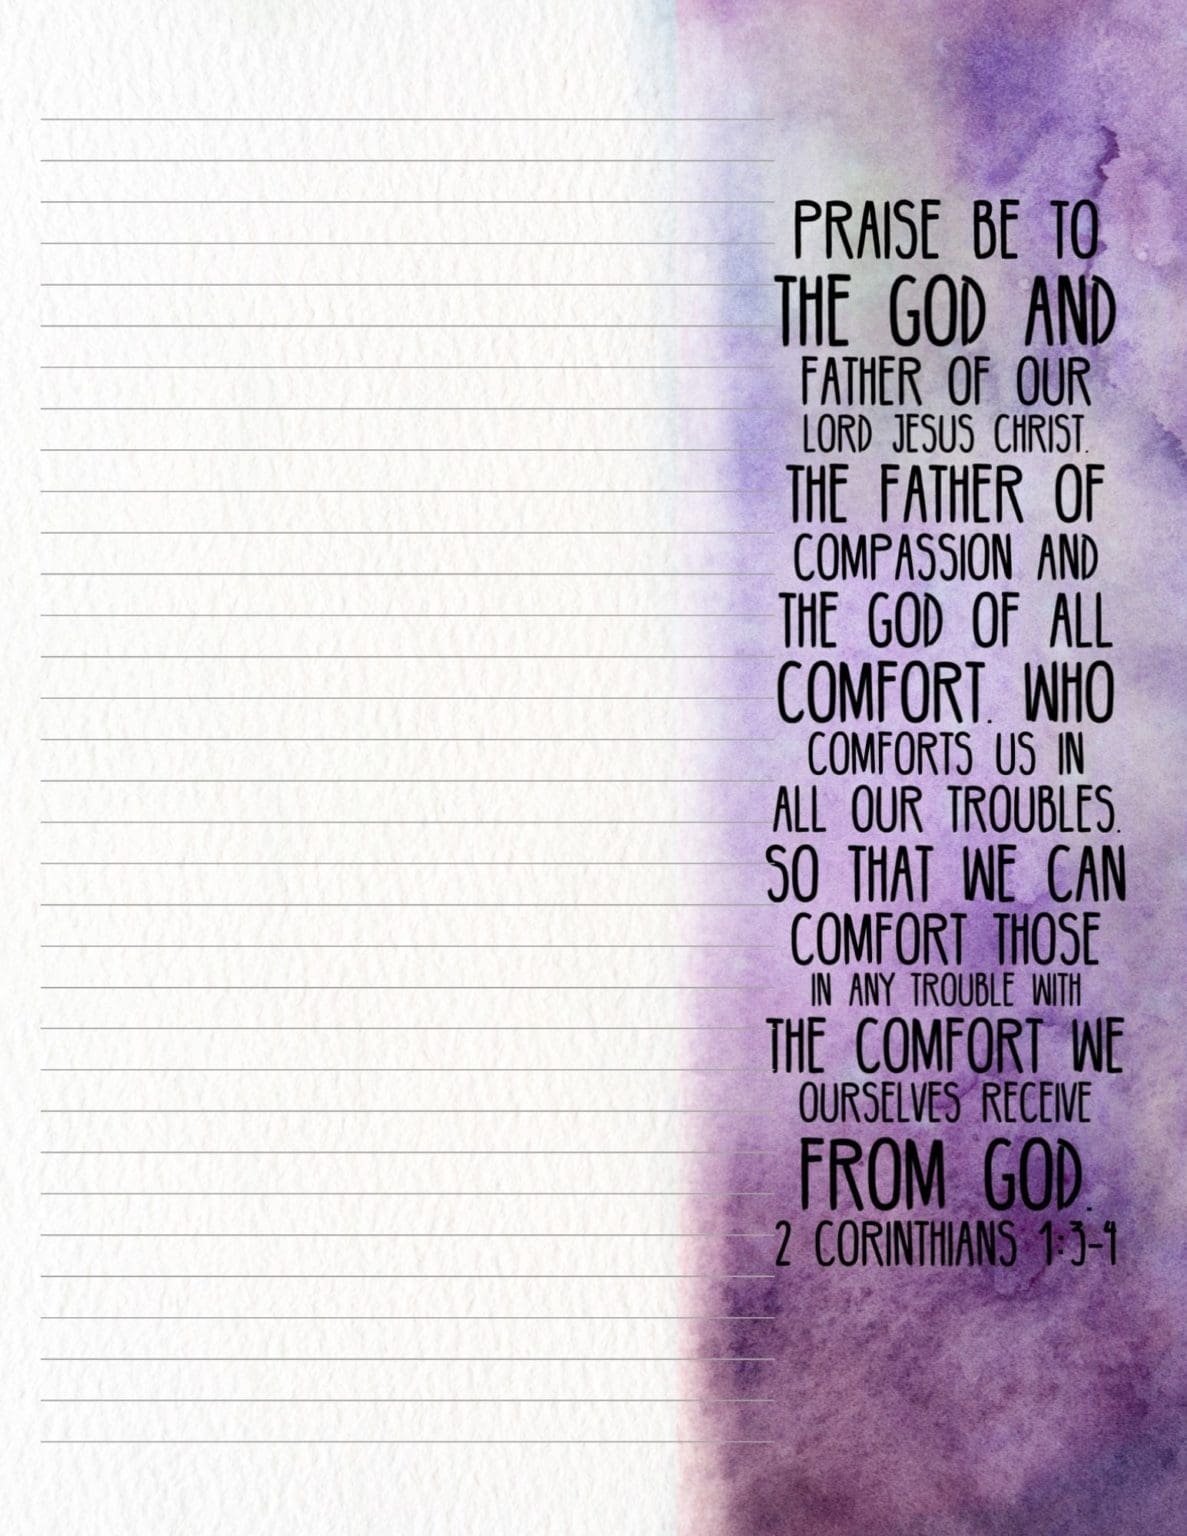 PRAISE BE TO
THE GOD AND
FATHER OF OUR
LORD JESUS CHRIST.
THE FATHER OF
COMPASSION AND
THE GOD OF ALL
COMFORT. WHO
COMFORTS US IN
ALL OUR TROUBLES.
SO THAT WE CAN
COMFORT THOSE
IN ANY TROUBLE WITH
THE COMFORT WE
OURSELVES RECEIVE
FROM GOD.
2 CORINTHIANS 1:3-4